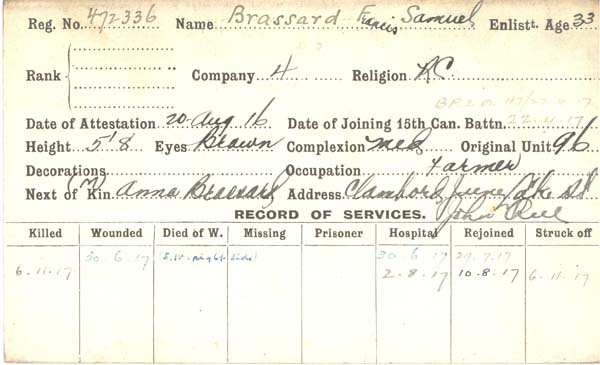 Reg. No. 472336 Name Brassard Francis Samuel Enlistt. Age 33
Rank Company 4 Religion RC.
Date of Attestation 20 Aug 16 Date of Joining 15th Can. Battn. 22.4.17
Height 5'8 Eyes Brown Complexion Med Original Unit 96
Decorations Occupation Farmer
Next of Kin (M) Anna Brassard Address Lake St
RECORD OF SERVICES. John
Killed Wounded Died of W. Missing Prisoner Hospital Rejoined Struck off
30.6.17 S.W. right side) 30 6 17 29.7.17
6.11.17 2-8.17 10.8.17 6.11.17